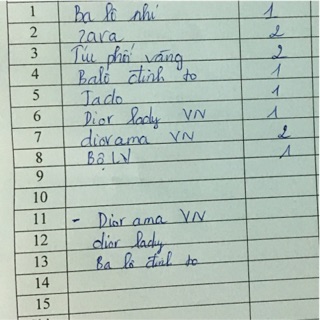 1 Ba lô nhí 1
2 zara 2
3 Túi phối vàng 2
4 Balô đinh to 1
5 Jado 1
6 Dior lady VN 1
7 diorama VN 2
8 Bộ LV 1
9
10
11 - Dior ama VN
12 dior lady
13 Ba lô đinh to
14
15